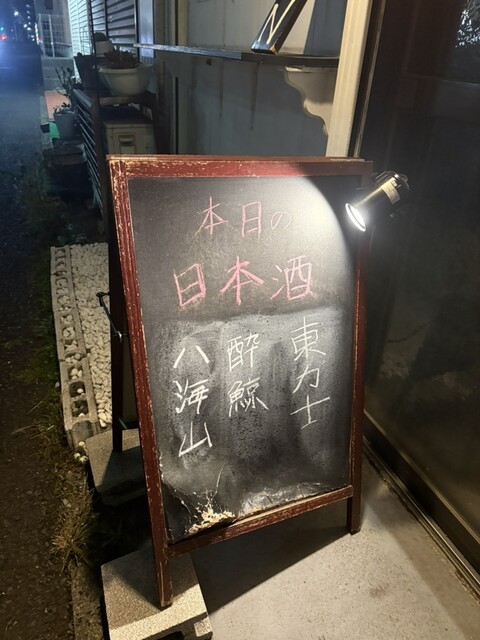 本日の
日本酒
東力士
酔鯨
八海山